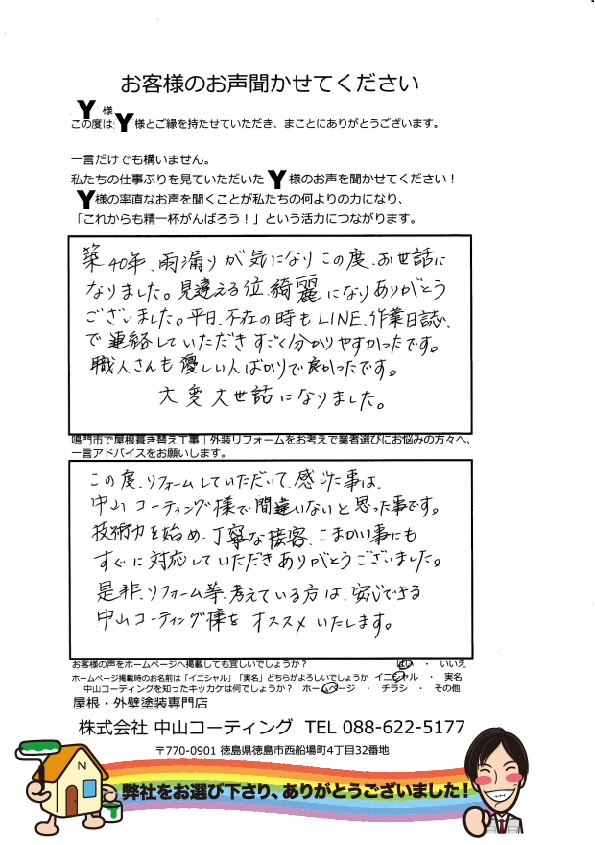 お客様のお声聞かせてください
Y 様
この度はY様とご縁を持たせていただき、まことにありがとうございます。
一言だけでも構いません。
私たちの仕事ぶりを見ていただいたY様のお声を聞かせてください！
Y様の率直なお声を聞くことが私たちの何よりの力になり、
「これからも精一杯がんばろう！」という活力につながります。
築40年、雨漏りが気になりこの度、お世話に
なりました。見違える位、綺麗になりありがとう
ございました。平日、不在の時もLINE、作業日誌、
で連絡していただきすごく分かりやすかったです。
職人さんも優しい人ばかりで良かったです。
大変お世話になりました。
鳴門市で屋根葺き替え工事｜外装リフォームをお考えで業者選びにお悩みの方々へ、
一言アドバイスをお願いします。
この度、リフォームしていただいて、感じた事は、
中山コーティング様で間違いないと思った事です。
技術力を始め、丁寧な接客、こまかい事にも
すぐに対応していただきありがとうございました。
是非、リフォーム等、考えている方は、安心できる
中山コーティング様をオススメいたします。
お客様の声をホームページへ掲載しても宜しいでしょうか？ はい ・ いいえ
ホームページ掲載時のお名前は「イニシャル」「実名」どちらがよろしいでしょうか イニシャル ・ 実名
中山コーティングを知ったキッカケは何でしょうか？ ホームページ ・ チラシ ・ その他
屋根・外壁塗装専門店
株式会社 中山コーティング TEL 088-622-5177
〒770-0901 徳島県徳島市西船場町4丁目32番地
N
弊社をお選び下さり、ありがとうございました！